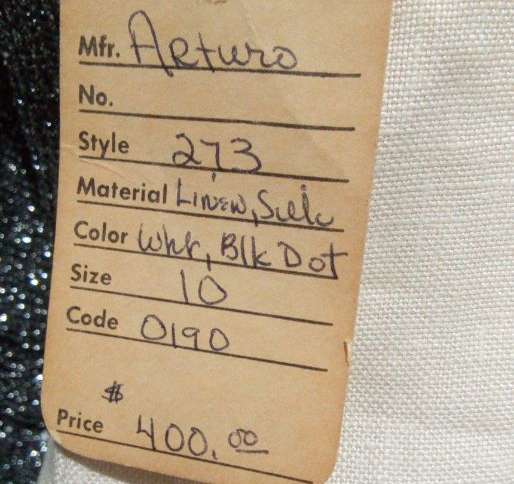 Mfr. Arturo
No.
Style 273
Material Linen, Silk
Color Wht, Blk Dot
Size 10
Code 0190
$
Price 400.00